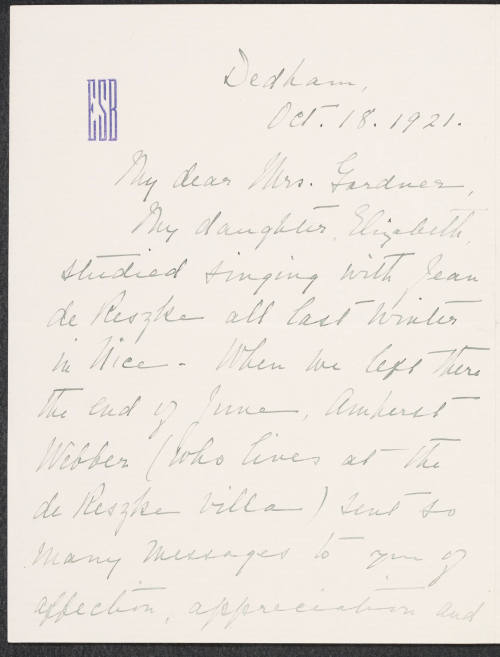 ESB
Dedham,
Oct. 18. 1921.
My dear Mrs. Gardner,
My daughter, Elizabeth,
studied singing with Jean
de Reszke all last winter
in Nice - When we left there
the end of June, Amherst
Webber (who lives at the
de Reszke villa) sent so
many messages to you of
affection, appreciation and